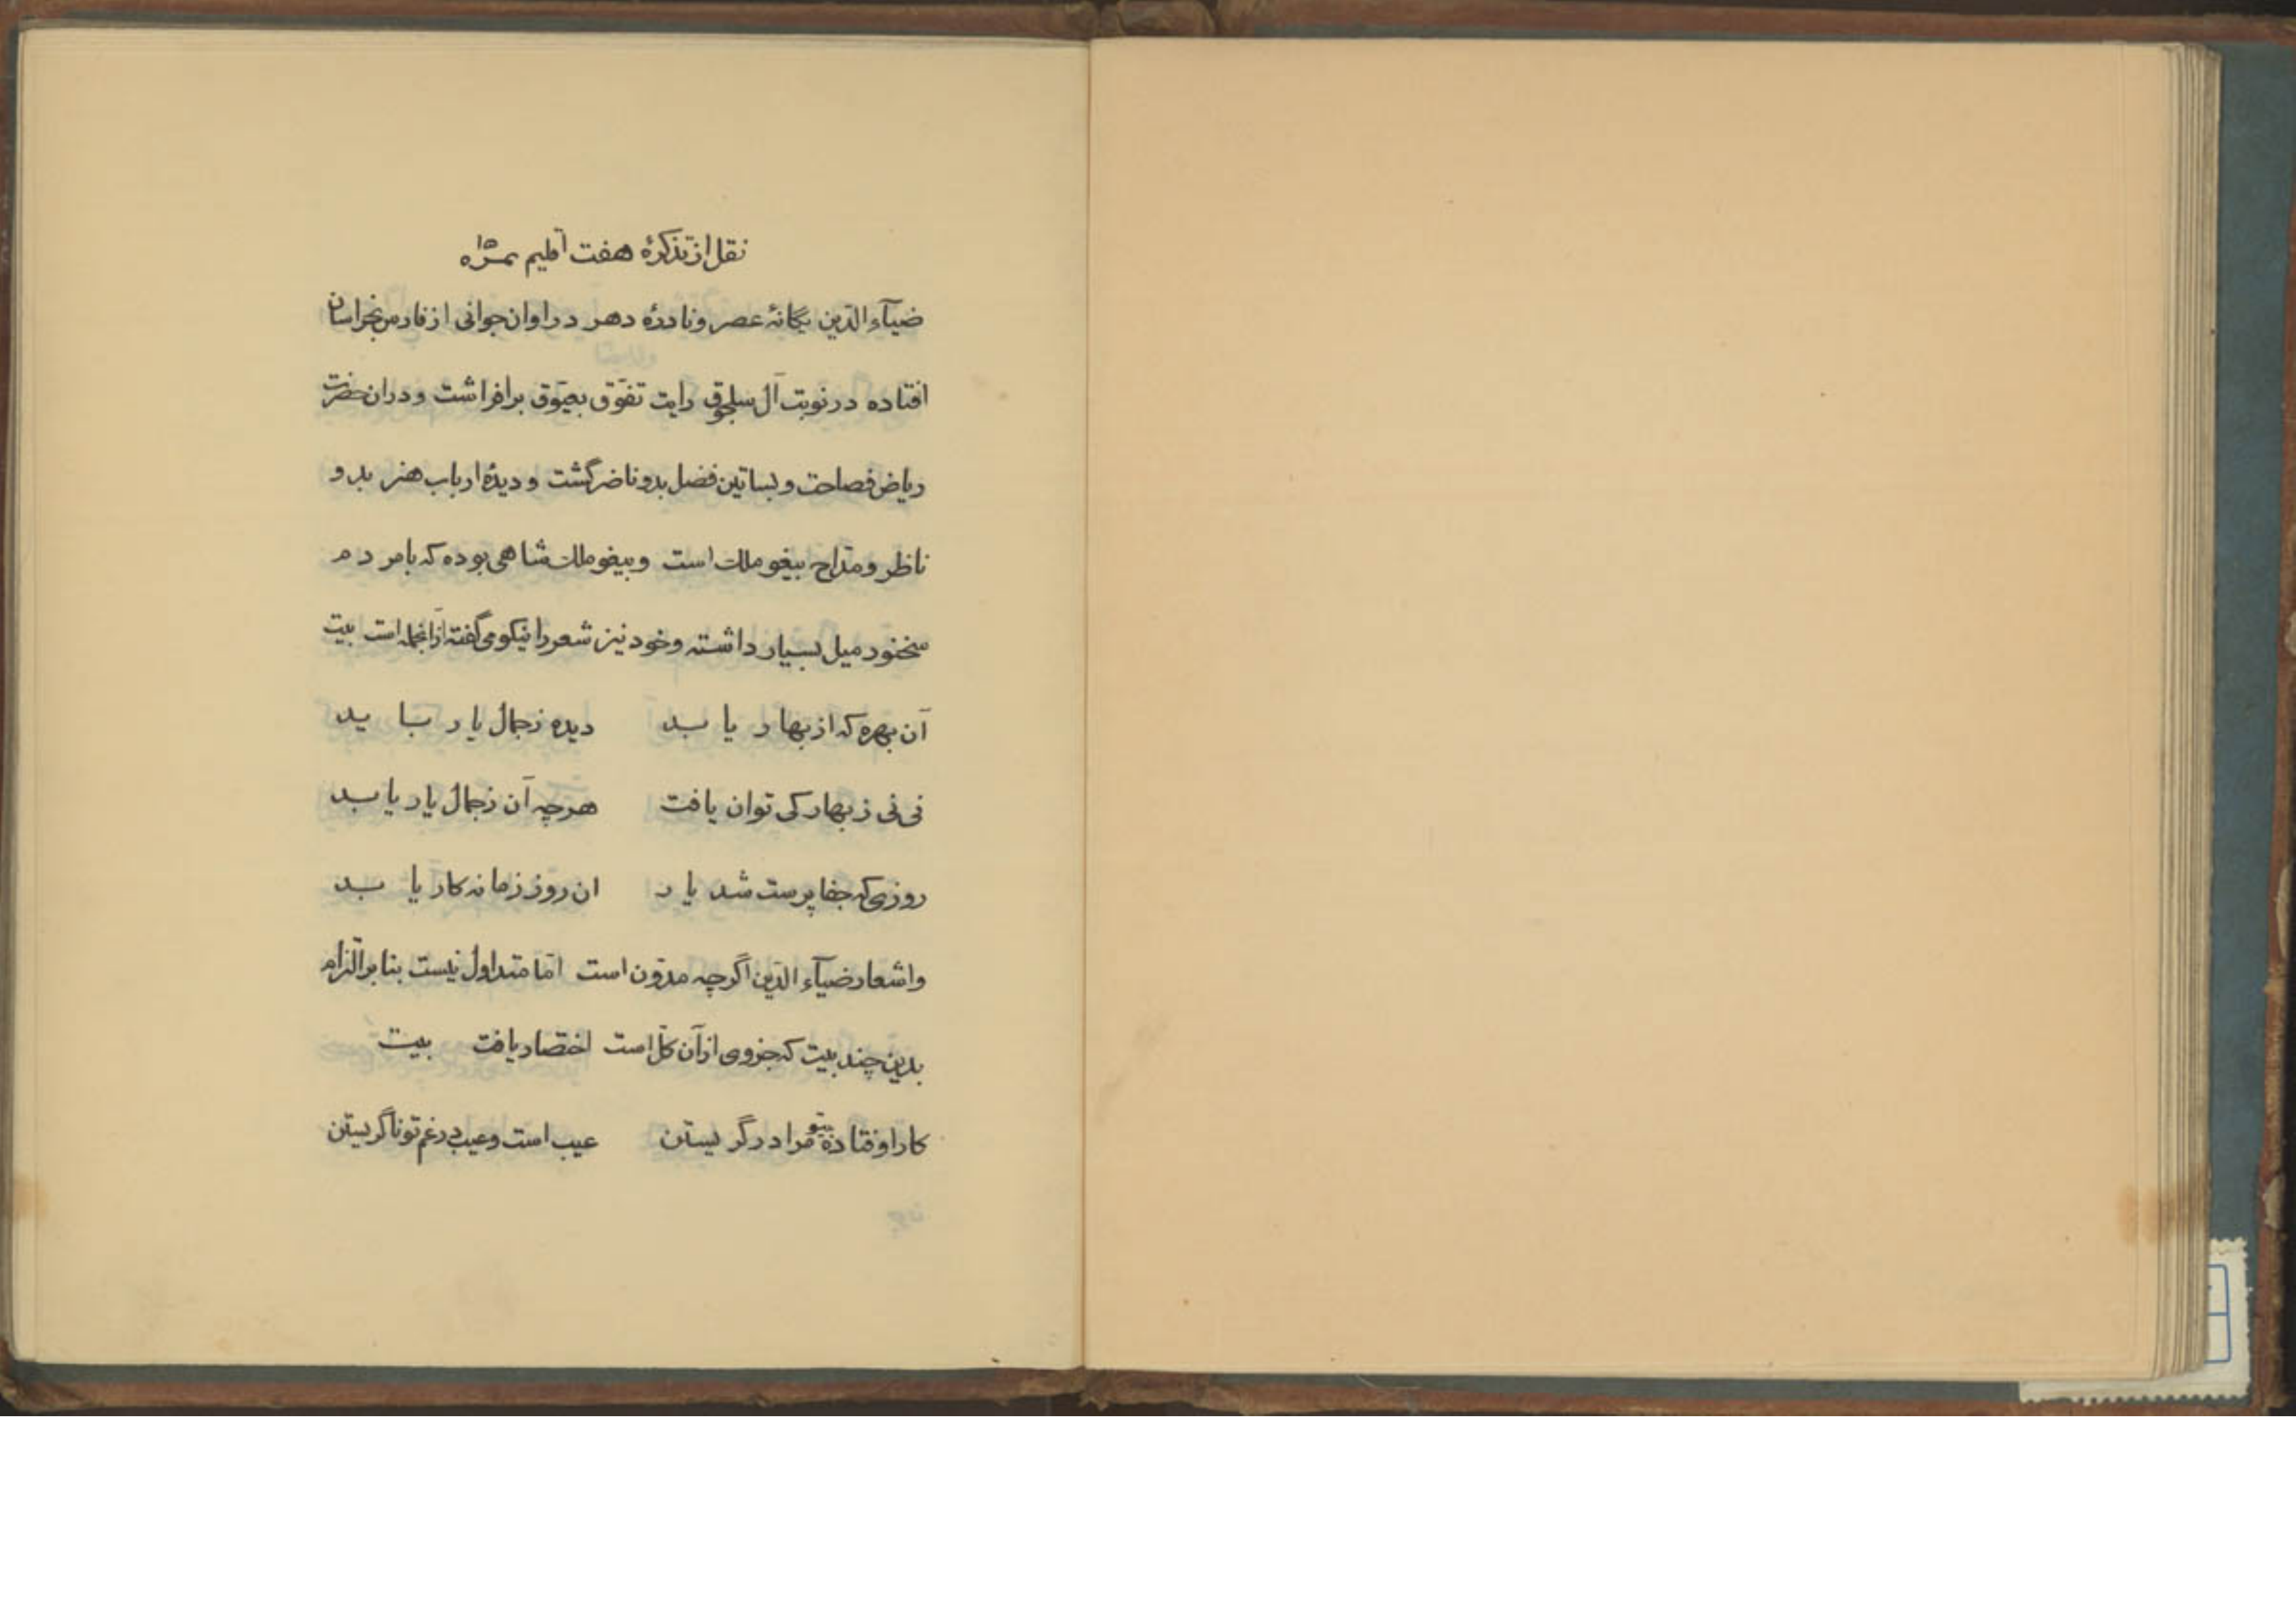 نقل از تذکرهٔ هفت اقلیم
ضیآء الدّین یگانهٔ عصر و نادرهٔ دهر در اوان جوانی از فارس بخراسان
افتاده در نوبت آل سلجوق رایت تفوّق بعیّوق برافراشت و دران حضرت
ریاض فصاحت و بساتین فضل بدو ناضر گشت و دیدهٔ ارباب هنر بدو
ناظر و مدّاح بیغو ملک است و بیغو ملک شاهی بوده که بامردم
سخنور میل بسیار داشته و خود نیز شعر را نیکو می گفته ازآنجمله است بیت
آن بهره که از بهار یابد دیده ز جمال یار باید
نی نی ز بهار کی توان یافت هرچه آن ز جمال یار یابد
روزی که جفا پرست شد یار ان روز زمانه کار یابد
و اشعار ضیآء الدّین اگرچه مدوّن است امّا متداول نیست بنا بر التزام
بدین چند بیت که جزوی از آن کلّ است اختصار یافت بیت
کار اوفتادهٔ بیتو مرا در گریستن عیب است و عیب در غم تو ناگریستن